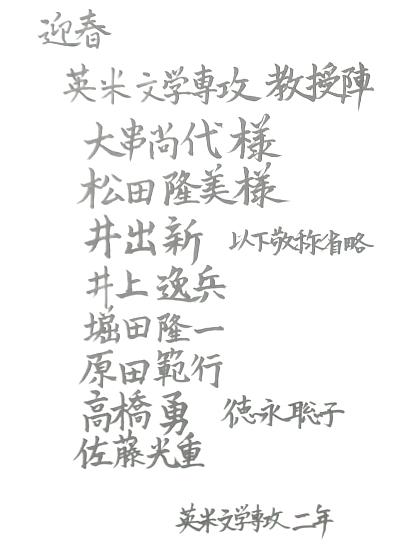 迎春
英米文学専攻 教授陣
大串尚代様
松田隆美様
井出新 以下敬称省略
井上逸兵
堀田隆一
原田範行
高橋勇 徳永聡子
佐藤光重
英米文学専攻 二年